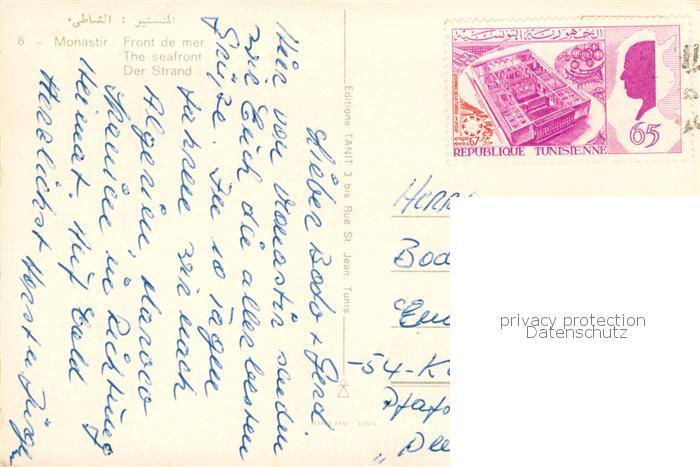 المنستير : الشاطئ
8 - Monastir : Front de mer
The seafront
Der Strand
Editions TANIT 3 bis Rue St. Jean, Tunis
Lieber Bodo + Gerd.
Hier von Monastir senden
wir Euch die allerbesten
Grüße. In 10 Tagen
fahren wir nach
Algerien, Marocco
Spanien in Richtung
Heimat. Auf bald
Herzlichst Horst u.
الجمهورية التونسية
65
EXPO 67
REPUBLIQUE TUNISIENNE
HERRN
Bod
-54-K
Pfaf
privacy protection
Datenschutz